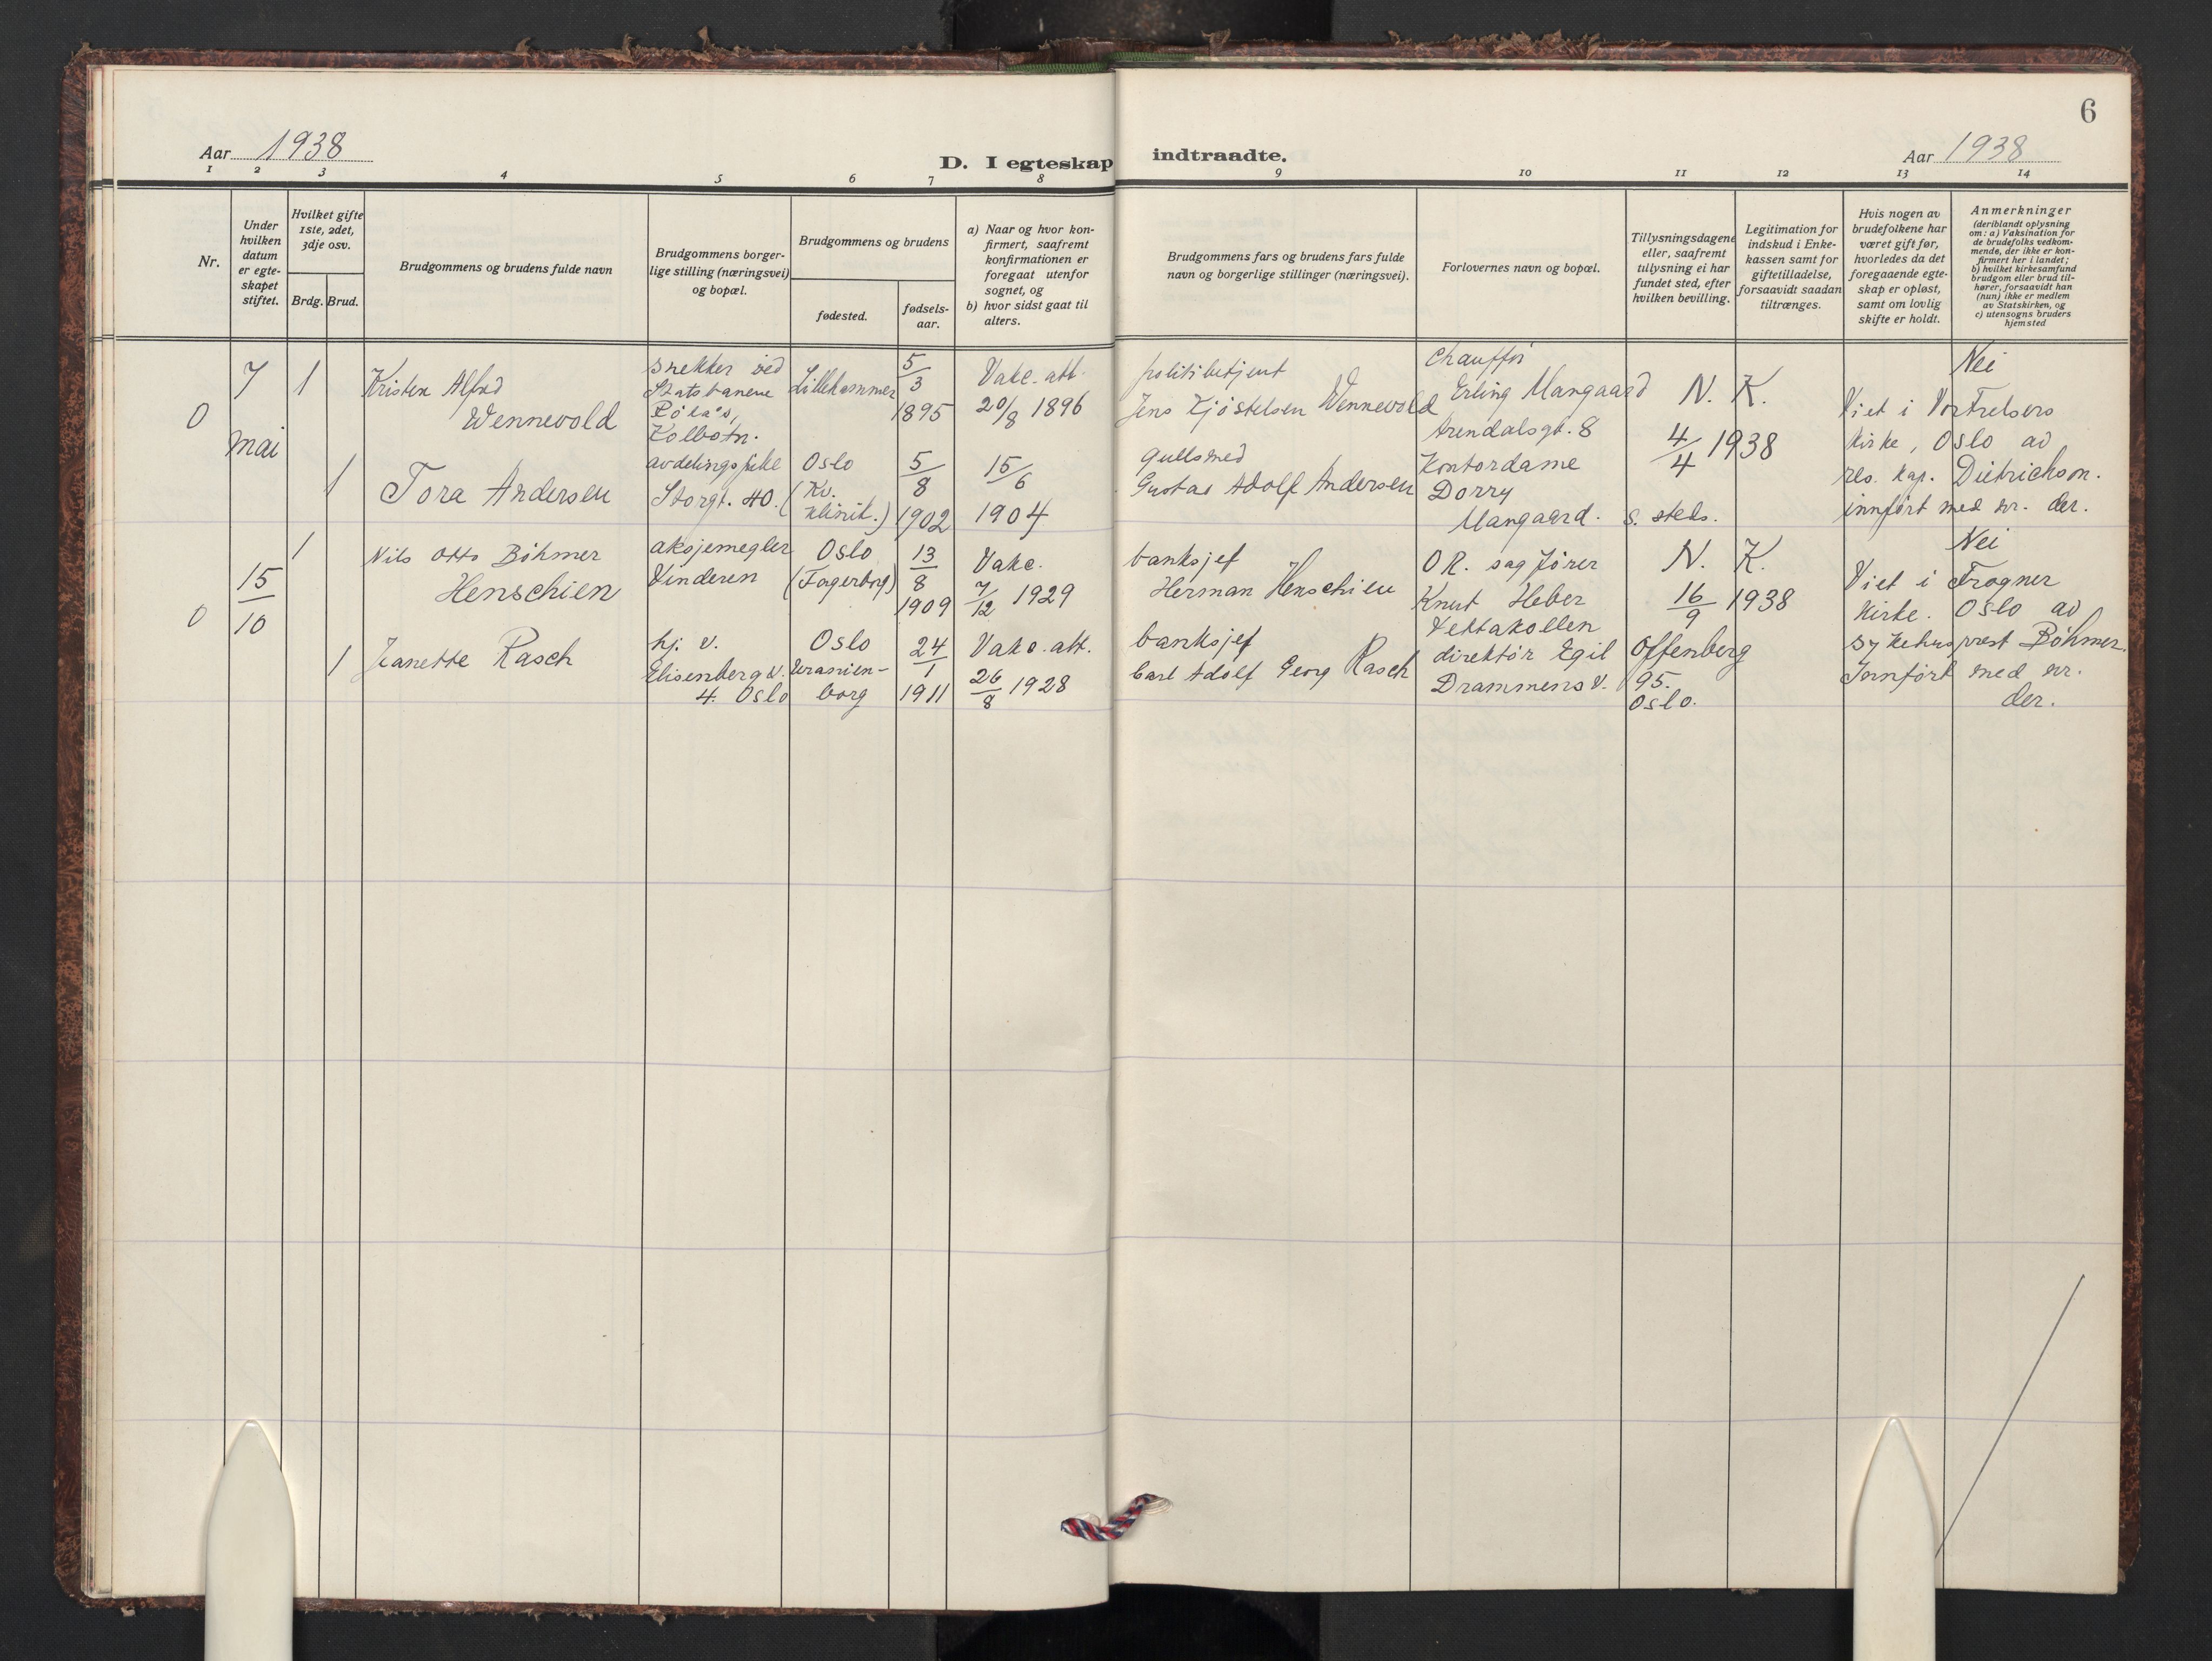 6
Aar 1938
D. I egteskap indtraadte.
Aar 1938
1 2 3 4 5 6 7 8 9 10 11 12 13 14
Nr.
Under
hvilken
datum
er egte-
skapet
stiftet.
Hvilket gifte
1ste, 2det,
3dje osv.
Brdg. Brud.
Brudgommens og brudens fulde navn
Brudgommens borger-
lige stilling (næringsvei)
og bopæl.
Brudgommens og brudens
fødested.
fødsels-
aar.
a) Naar og hvor kon-
firmert, saafremt
konfirmationen er
foregaat utenfor
sognet, og
b) hvor sidst gaat til
alters.
Brudgommens fars og brudens fars fulde
navn og borgerlige stillinger (næringsvei).
Forlovernes navn og bopæl.
Tillysningsdagene
eller, saafremt
tillysning ei har
fundet sted, efter
hvilken bevilling.
Legitimation for
indskud i Enke-
kassen samt for
giftetilladelse,
forsaavidt saadan
tiltrænges.
Hvis nogen av
brudefolkene har
været gift før,
hvorledes da det
foregaaende egte-
skap er opløst,
samt om lovlig
skifte er holdt.
Anmerkninger
(deriblandt oplysning
om: a) Vaksination for
de brudefolks vedkom-
mende, der ikke er kon-
firmert her i landet;
b) hvilket kirkesamfund
brudgom eller brud til-
hører, forsaavidt han
(hun) ikke er medlem
av Statskirken, og
c) utensogns bruders
hjemsted
0
7
mai
1
Kristen Alfred
Wennevold
snekker ved
Statsbanene
Kolbotn.
Lillehammer
5/3
1895
Vakc. att.
20/8 1896
politibetjent
Jens Kjøstelsen Wennevold
Chauffør
Erling Mangaard
Arendalsgt. 8
N. K.
4/4 1938
Nei
Viet i Vor Frelsers
Kirke, Oslo av
res. kap. Dietrichson.
innført med nr. der.
1
Tora Andersen
avdelingsfrøke
Storgt. 40.
Oslo
(Kv.
klinik.)
5/8
1902
15/6
1904
gullsmed
Gustav Adolf Andersen
Kontordame
Dorry
Mangaard. s. steds.
0
15/10
1
Nils Otto Böhmer
Henschien
aksjemegler
Vinderen
Oslo
(Fagerborg)
13/8
1909
Vakc.
7/12 1929
banksjef
Herman Henschien
O R. sagfører
Knut Heber
Vettakollen
N. K.
16/9 1938
Nei
Viet i Frogner
Kirke. Oslo av
sykehusprest Böhmer.
Innført med nr.
der.
1
Janette Rasch
hj. v.
Elisenberg v.
4. Oslo
Oslo
Uranien-
borg
24/1
1911
Vakc. att.
26/8 1928
banksjef
Carl Adolf Georg Rasch
direktør Egil Offenberg
Drammens v. 95.
Oslo.